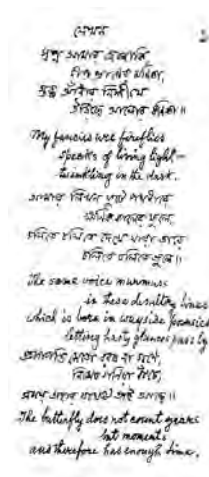 লেখন
স্বপ্ন আমার জোনাকি
দীপ্ত প্রাণের মণিকা,
স্তব্ধ আঁধার নিশীথে
উড়িছে আলোর কণিকা॥
My fancies are fireflies
specks of living light—
twinkling in the dark.
আমার লিখন ফুটে পথধারে
ক্ষণিক কালের ফুলে,
চলিতে চলিতে দেখে যারা তারে
চলিতে চলিতে ভুলে॥
The same voice murmurs
in these desultory lines
which is born in wayside pansies
letting hasty glances pass by
প্রজাপতি সেতো বরষ না গণে,
নিমেষ গণিয়া বাঁচে,
সময় তাহার যথেষ্ট তাই আছে॥
The butterfly does not count years
but moments
and therefore has enough time.